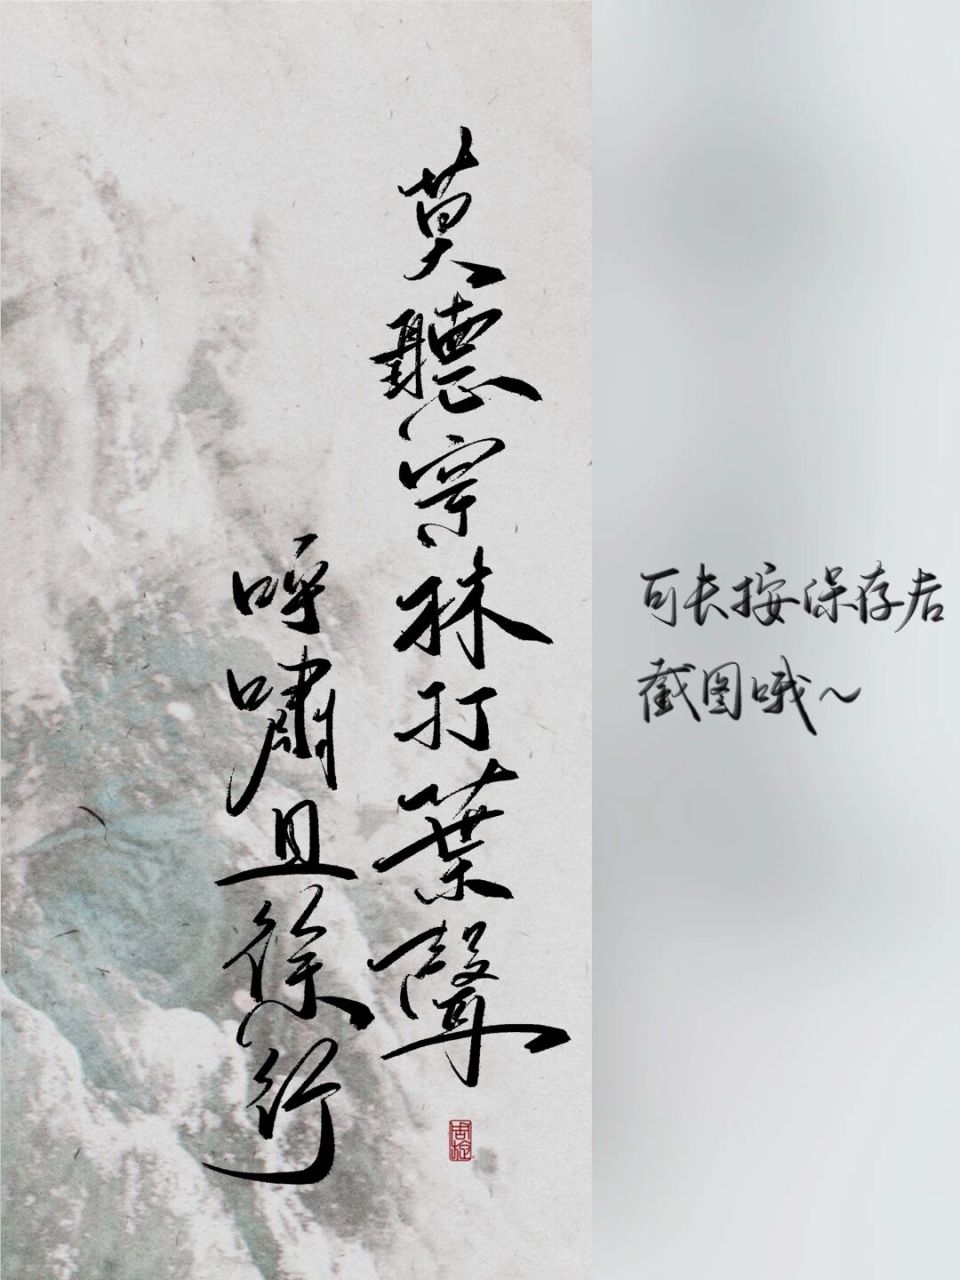 莫聽穿林打葉聲
呼嘯且徐行
可长按保存后
截图哦～